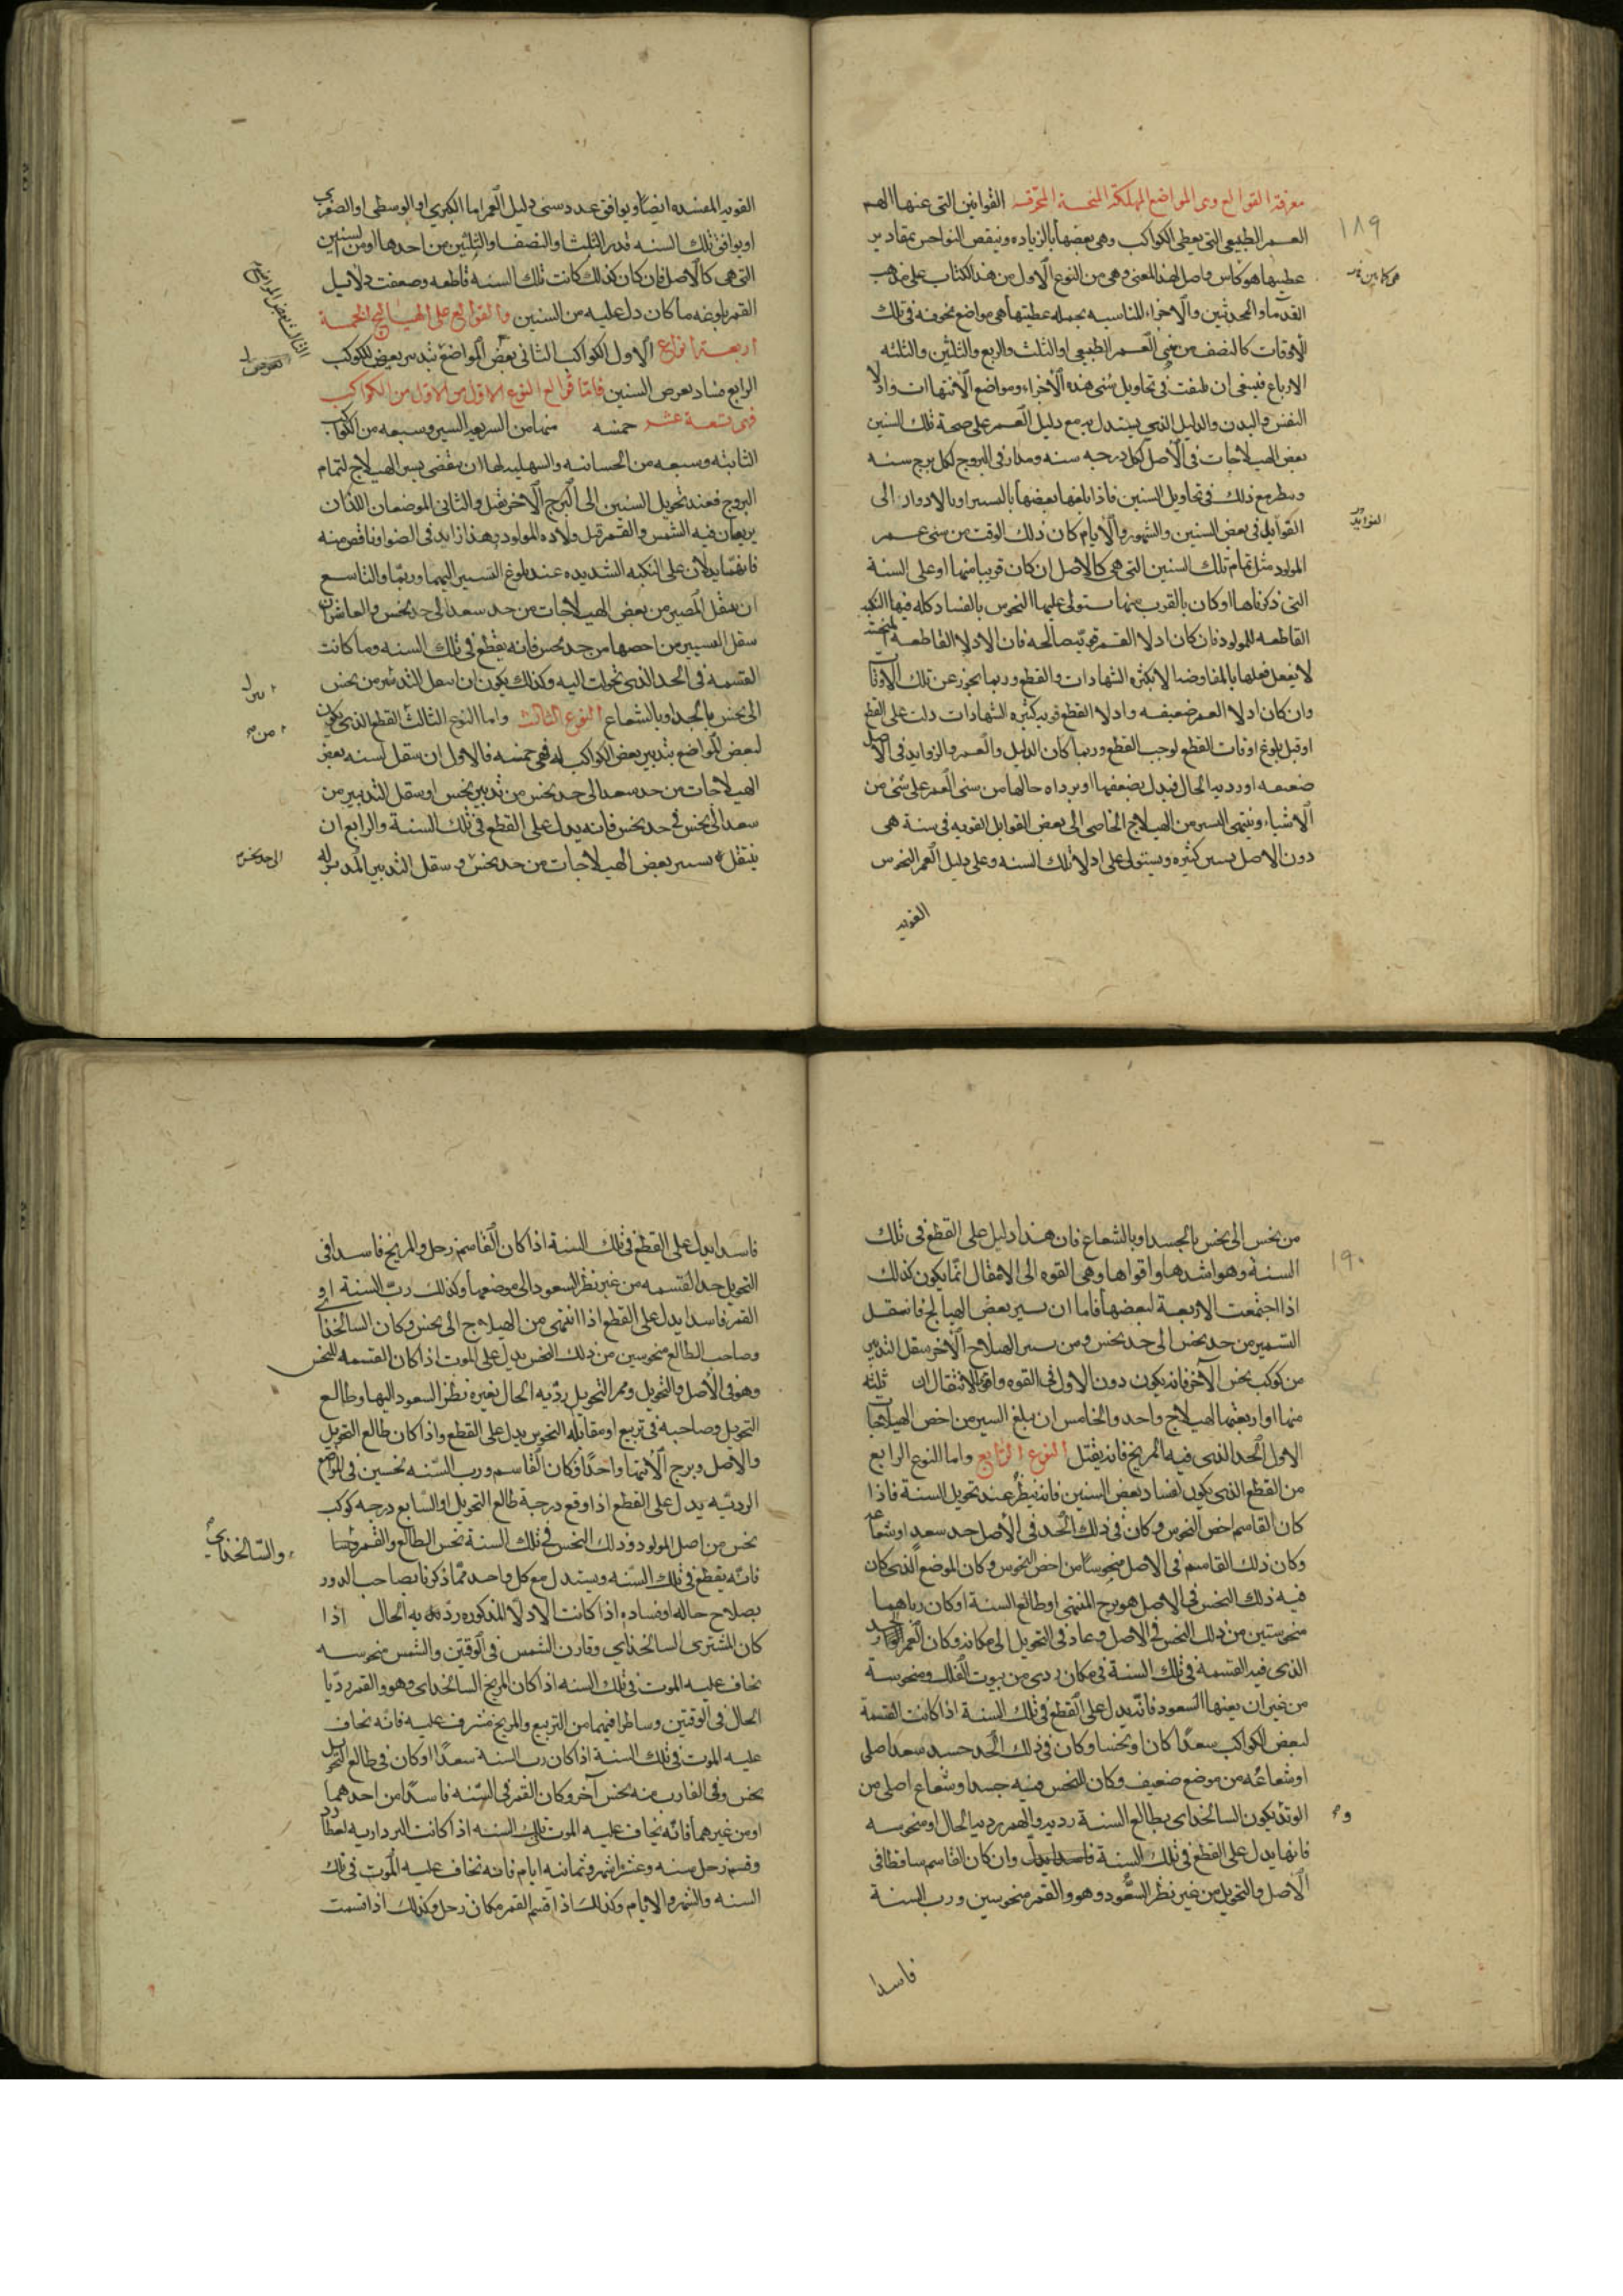 ١٨٩
معرفة القواطع وهى المواضع المهلكة المنحسة المخوفه القوانين التى عنها الهم
العمر الطبيعى التى يعطى الكواكب وهى بعضها بالزياده وينقص النواحس بمقادير
عطيتها هو كاس واصل لهذا المعنى وهى من النوع الاول من هذا الكتاب على مذهب
القدما والمحدثين والاجزاء المناسبه بجمله عطيتها هى مواضع مخوفه فى تلك
الاوقات كالنصف من سنى العمر الطبيعى او الثلث والربع والثلثين والثلثه
الارباع فينبغى ان يلتفت فى تحاويل سنى هذه الاجزاء ومواضع الانتهاات وادلا
النفس والبدن والدليل الذى يستدل به مع دليل العمر على صحة تلك السنين
بعض الهيلاجات فى الاصل لكل درجه سنه ومدار فى البروج لكل برج سنه
وينظر مع ذلك فى تحاويل السنين فاذا بلغها بعضها بالتسيير او بالادوار الى
القوابل فى بعض السنين والشهور والايام كان ذلك الوقت من سنى عمر
المولود مثل تمام تلك السنين التى هى كالاصل ان كان قريبا منها او على السنة
التى ذكرناها او كان بالقرب منها يستولى عليها النحوس بالفساد كله فيها النكبه
القاطعه للمولود فان كان ادلا القمر قويه صالحه فان الادلا القاطعه
لا تفعل فعلها بالمفاوضه الا بكثره الشهادات والقطع وربما يجوز عن تلك الاوقات
وان كان ادلا العمر ضعيفه وادلا القطع قويه كثيره الشهادات دلت على القطع
او قبل بلوغ اوقات القطع لوجب القطع وربما كان الدليل والعمر والزوايد فى الاصل
ضعيفه او رديه الحال فيدل بضعفها او برداه حالها من سنى العمر على شى من
الاشياء وينتهى السير من الهيلاج الخاصى الى بعض القوابل القويه فى سنة هى
دون الاصل بسير كثيره ويستولى على ادلا تلك السنه وعلى دليل العمر النحوس
القويه
القويه المفسده ايضا ويوافق عدد سنى دليل العمر اما الكبرى او الوسطى او الصغرى
او يوافق تلك السنه قدر الثلث او النصف او الثلثين من احدها او من السنين
التى هى كالاصل فان كان كذلك كانت تلك السنه قاطعه وضعفت دلايل
القمر باوضه ما كان دل عليه من السنين والقواطع على الهيالج الخمسة
اربعة انواع الاول الكواكب الثانى بعض المواضع بتدبير بعض الكوكب
الرابع فساد بعرض السنين فاما قواطع النوع الاول من الاول من الكواكب
فهى تسعة عشر خمسه منها من السريعه السير وسبعه من الكواكب
الثابته وسبعه من الحسانيه والسهليه لها ان ينقضى بسير الهيلاج لتمام
البروج فعند تحويل السنين الى البرج الاخر يقتل والثانى الموضعان اللذان
يربعان فيه الشمس والقمر قبل ولاده المولود وهذا زايد فى الضوا وناقص منه
فانهما يدلان على النكبه الشديده عند بلوغ التسيير اليهما وربما والتاسع
ان ينتقل المسير من بعض الهيلاجات من حد سعد الى حد نحس والعاشر ان
ينتقل التسيير من اخصها من حد نحس فانه يقطع فى تلك السنه وما كانت
القسمه فى الحد الذى تحولت اليه وكذلك يكون ان انتقل التدبير من نحس
الى نحس بالجسد او بالشعاع النوع الثالث واما النوع الثالث القطع الذى يكون
لبعض المواضع بتدبير بعض الكواكب له فهى خمسه فالاول ان ينتقل لسنه بعض
الهيلاجات من حد سعد الى حد نحس من تدبير نحس او ينتقل التدبير من
سعد الى نحس فى حد نحس فانه يدل على القطع فى تلك السنة والرابع ان
ينتقل بسير بعض الهيلاجات من حد نحس و ينتقل التدبير المدبر له
الى حد نحس
١٩٠
من نحس الى نحس بالجسد او بالشعاع فان هذا دليل على القطع فى تلك
السنة وهو اشدها واقواها وهى القوه الى الانتقال انما يكون كذلك
اذا اجتمعت الاربعة لبعضها فاما ان يسير بعض الهيالج فانتقل
التسيير من حد نحس الى حد نحس ومن سير الهيلاج الاخر ينتقل التدبير
من كوكب نحس الآخر فانه يكون دون الاول فى القوه واقوا الانتقال ان ثلثه
منها او اربعتها الهيلاج واحد والخامس ان يبلغ السير من اخص الهيلاجات
الاول الحد الذى فيه المريخ فانه يقتل النوع الرابع واما النوع الرابع
من القطع الذى يكون لفساد بعض السنين فانه ينظر عند تحويل السنة فاذا
كان القاسم اخص النحوس وكان فى ذلك الحد فى الاصل جسد سعد او شعاعه
وكان ذلك القاسم فى الاصل منحوسا من اخص النحوس وكان الموضع الذى كان
فيه ذلك النحس فى الاصل هو برج المنتهى او طالع السنة او كان رباهما
منحوستين من ذلك النحس فى الاصل وعاد فى التحويل الى مكانه وكان القمر الحد
الذى فيه القسمه فى تلك السنة فى مكان ردى من بيوت الفلك ومنحوسة
من غير ان يعينها السعود فانه يدل على القطع فى تلك السنة اذا كانت القسمة
لبعض الكواكب سعدا كان او نحسا وكان فى ذلك الحد جسد سعد اصلى
او شعاعه من موضع ضعيف وكان للنحس فيه جسد او شعاع اصلى من
الوتد يكون السالخداى بطالع السنة رديه والقمر ردى الحال او منحوسه
فانها يدل على القطع فى تلك السنة وان كان القاسم ساقطا فى
الاصل والتحويل من غير نظر السعود وهو والقمر منحوسين ورب السنة
فاسدا
فاسدا يدل على القطع فى تلك السنة اذا كان القاسم زحل والمريخ فاسدا فى
التحويل حد القسمه من غير نظر السعود الى موضعها وكذلك رب السنة او
القمر فاسدا يدل على القطع اذا انتهى من الهيلاج الى نحس وكان السالخدا
وصاحب الطالع منحوسين من ذلك النحس يدل على الموت اذا كان القسمه للنحس
وهو فى الاصل والتحويل وممر التحويل رديه الحال بغيره نظر السعود اليها وطالع
التحويل وصاحبه فى تربيع او مقابله النحوس يدل على القطع واذا كان طالع التحويل
والاصل وبرج الانتها واحدا وكان القاسم ورب السنه نحسين فى المواضع
الرديه يدل على القطع اذا وقع درجة طالع التحويل او السابع درجه كوكب
نحس من اصل المولود وذلك النحس فى تلك السنة نحس الطالع والقمر وربها
والسالخداى
فانه يقطع فى تلك السنه ويستدل مع كل واحد مما ذكرنا بصاحب الدور
بصلاح حاله او فساده اذا كانت الادلا المذكوره رديه الحال اذا
كان المشترى السالخداى وقارن الشمس فى الوقتين والشمس منحوسه
يخاف عليه الموت فى تلك السنه اذا كان المريخ السالخداى وهو والقمر رديا
الحال فى الوقتين وساظرا فيهما من التربيع والمريخ مشرف عليه فانه يخاف
عليه الموت فى تلك السنة اذا كان رب السنة سعدا او كان فى طالع التحويل
نحس وفى الغارب منه نحس آخر وكان القمر فى السنه فاسدا من احدهما
او من غيرهما فانه يخاف عليه الموت تلك السنه اذا كانت الفرداريه لعطارد
وقسم زحل سنه وعشرا شهر وثمانيه ايام فانه يخاف عليه الموت فى تلك
السنه والشهر والايام وكذلك اذا قسم القمر مكان زحل وكذلك اذا قسمت